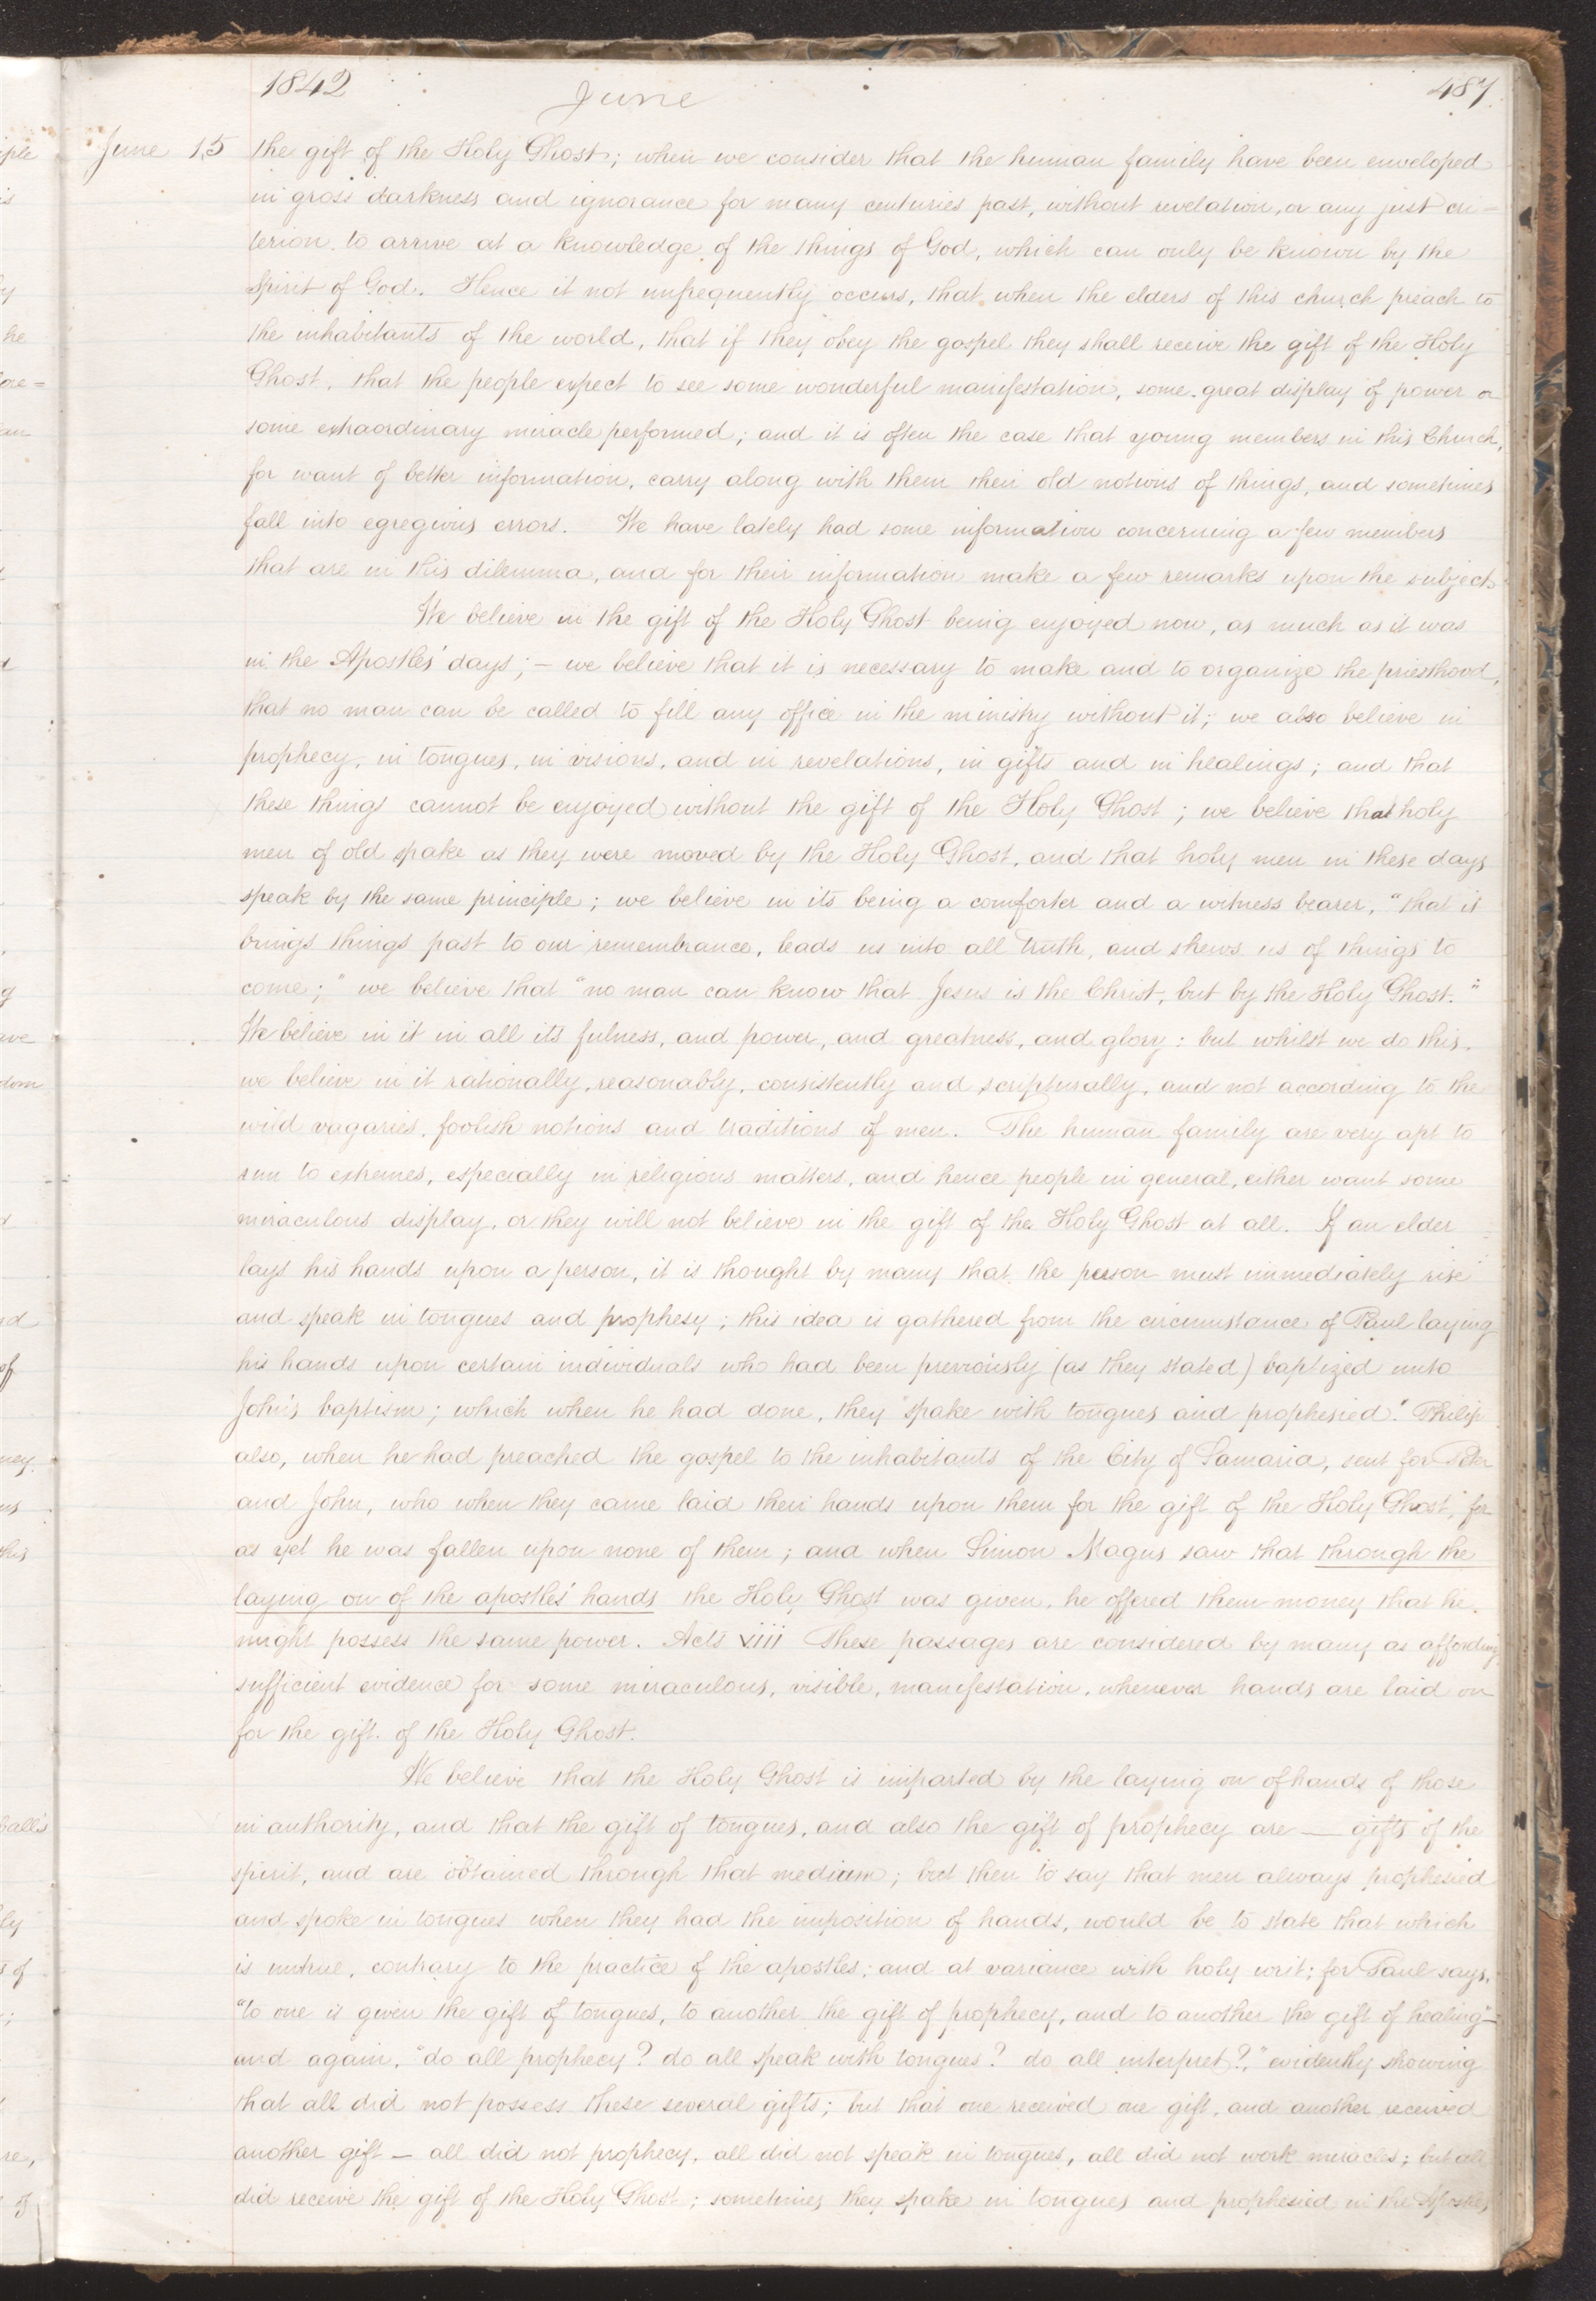 1842
June
487.
June 15
the gift of the Holy Ghost; when we consider that the human family have been enveloped
in gross darkness and ignorance for many centuries past, without revelation, or any just cri-
terion to arrive at a knowledge of the things of God, which can only be known by the
Spirit of God. Hence it not unfrequently occurs, that when the elders of this church preach to
the inhabitants of the world, that if they obey the gospel they shall receive the gift of the Holy
Ghost, that the people expect to see some wonderful manifestation, some great display of power or
some extraordinary miracle performed; and it is often the case that young members in this Church,
for want of better information, carry along with them their old notions of things, and sometimes
fall into egregious errors. We have lately had some information concerning a few members
that are in this dilemma, and for their information make a few remarks upon the subject.
We believe in the gift of the Holy Ghost being enjoyed now, as much as it was
in the Apostles' days; — we believe that it is necessary to make and to organize the priesthood,
that no man can be called to fill any office in the ministry without it; we also believe in
prophecy, in tongues, in visions, and in revelations, in gifts and in healings; and that
these things cannot be enjoyed without the gift of the Holy Ghost; we believe that holy
men of old spake as they were moved by the Holy Ghost, and that holy men in these days
speak by the same principle; we believe in its being a comforter and a witness bearer, "that it
brings things past to our remembrance, leads us into all truth, and shews us of things to
come;" we believe that "no man can know that Jesus is the Christ, but by the Holy Ghost."
We believe in it in all its fulness, and power, and greatness, and glory: but whilst we do this,
we believe in it rationally, reasonably, consistently and scripturally, and not according to the
wild vagaries, foolish notions and traditions of men. The human family are very apt to
run to extremes, especially in religious matters, and hence people in general, either want some
miraculous display, or they will not believe in the gift of the Holy Ghost at all. If an elder
lays his hands upon a person, it is thought by many that the person must immediately rise
and speak in tongues and prophesy; this idea is gathered from the circumstance of Paul laying
his hands upon certain individuals who had been previously (as they stated) baptized unto
John's baptism; which when he had done, they "spake with tongues and prophesied." Philip
also, when he had preached the gospel to the inhabitants of the City of Samaria, sent for Peter
and John, who when they came laid their hands upon them for the gift of the Holy Ghost, "for
as yet he was fallen upon none of them; and when Simon Magus saw that through the
laying on of the apostles' hands the Holy Ghost was given, he offered them money that he
might possess the same power. Acts viii These passages are considered by many as affording
sufficient evidence for some miraculous, visible, manifestation, whenever hands are laid on
for the gift of the Holy Ghost.
We believe that the Holy Ghost is imparted by the laying on of hands of those
in authority, and that the gift of tongues, and also the gift of prophecy are — gifts of the
spirit, and are obtained through that medium; but then to say that men always prophesied
and spoke in tongues when they had the imposition of hands, would be to state that which
is untrue, contrary to the practice of the apostles; and at variance with holy writ; for Paul says,
"to one is given the gift of tongues, to another the gift of prophecy, and to another the gift of healing"—
and again, "do all prophecy? do all speak with tongues? do all interpret?," evidently showing
that all did not possess these several gifts; but that one received one gift, and another received
another gift — all did not prophecy, all did not speak in tongues, all did not work miracles; but all
did receive the gift of the Holy Ghost; sometimes they spake in tongues and prophesied in the Apostles